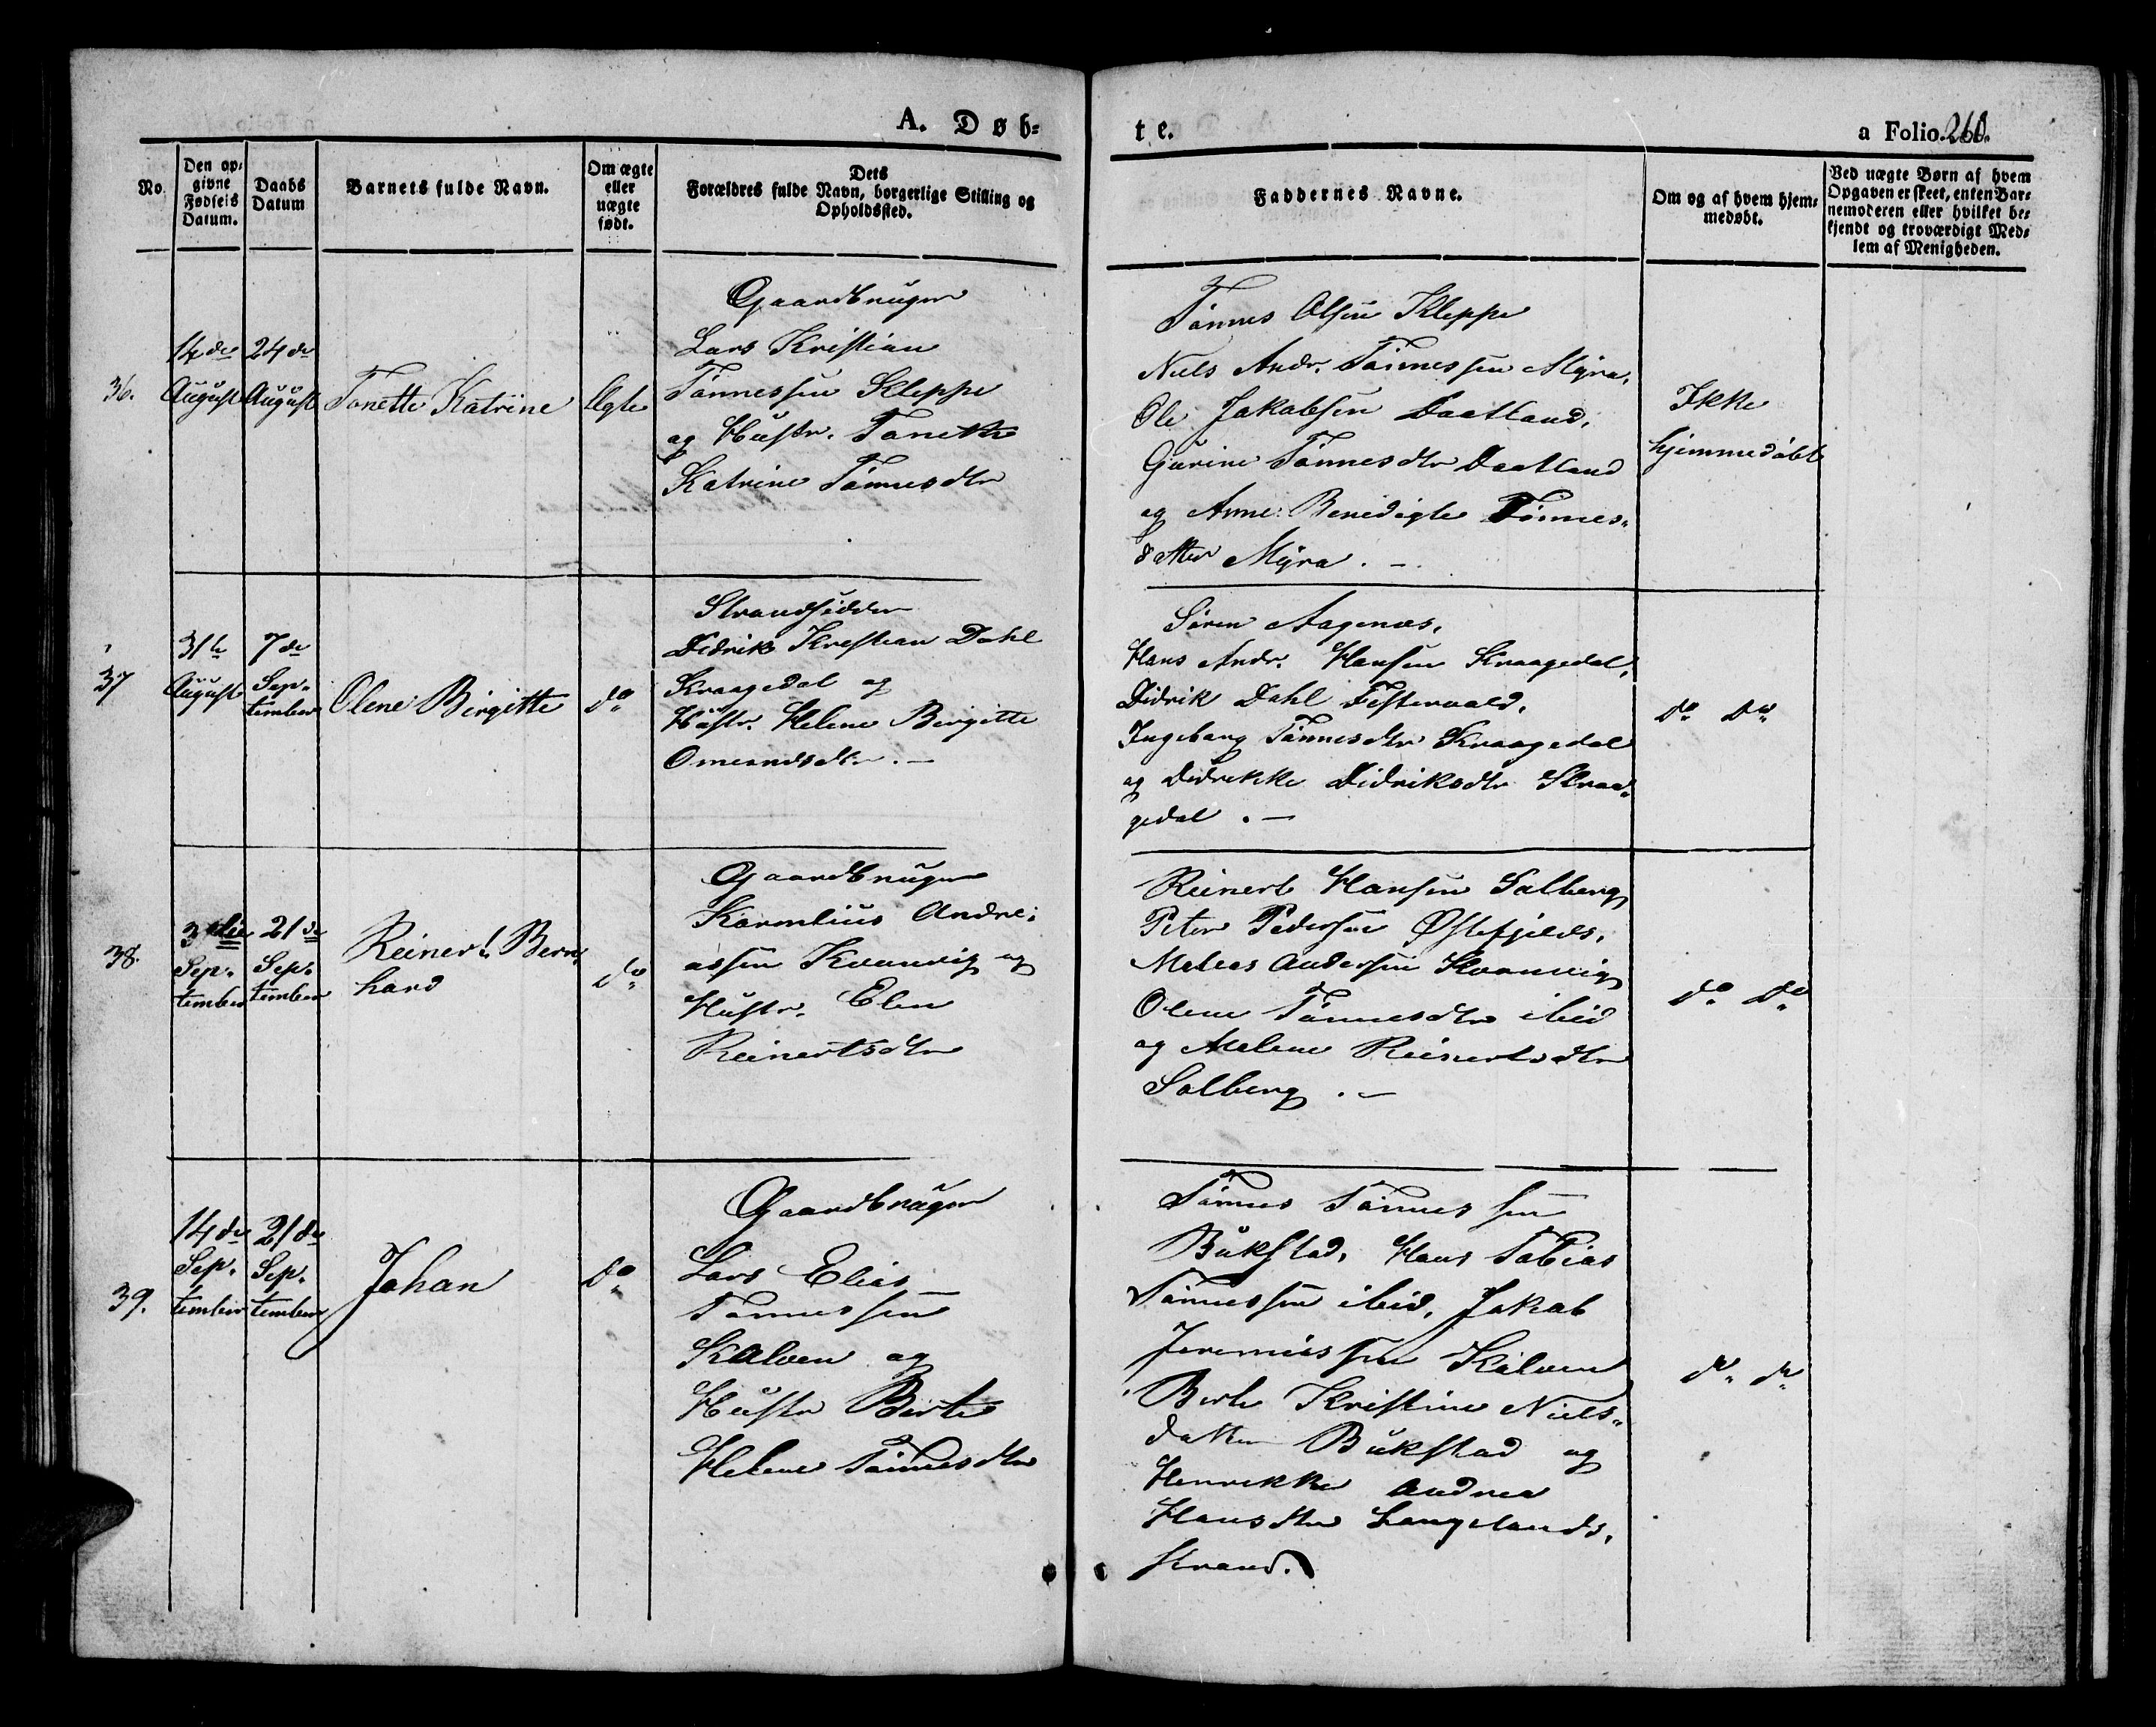 A. Døb-
te.
a Folio. 260.
No.
Den op-
givne
Fødsels
Datum.
Daabs
Datum
Barnets fulde Navn.
Om ægte
eller
uægte
født.
Dets
Forældres fulde Navn, borgerlige Stilling og
Opholdssted.
Faddernes Navne.
Om og af hvem hjem-
medøbt.
Ved uægte Børn af hvem
Opgaven er skeet, enten Bar-
nemoderen eller hvilket be-
kjendt og troværdigt Med-
lem af Menigheden.
36.
14de
August
24de
August
Tonette Katrine
Ægte
Gaardbruger
Lars Kristian
Tønnessen Kleppe
og Hustr. Tonette
Katrine Tønnesdtr
Tønnes Olsen Kleppe
Niels Andr. Tønnessen Myra,
Ole Jakobsen Daatland,
Gurine Tønnesdtr Daatland
og Anne Benedigte Tønnes-
datter Myra. -
Ikke
hjemmedøbt
37
31te
August
7de
Sep-
tember
Olene Birgitte
do
Strandsidder
Didrik Kristian Dahl
Kraagedal og
Hustr. Helene Birgitte
Omundsdtr. -
Søren Aagenæs,
Hans Andr. Hansen Kraagedal,
Didrik Dahl Festervold,
Ingeborg Tønnesdtr Kraagedal
og Didrikke Didriksdtr Kraa-
gedal. -
do do
38.
3die
Sep-
tember
21de
Sep-
tember
Reinert Bern-
hard
do
Gaardbruger
Kornelius Andre-
assen Kvanvig og
Hustr. Elen
Reinertsdtr
Reinert Hansen Solberg,
Peter Pedersen Østefjelds,
Meleas Andersen Kvanvig
Olene Tønnesdtr ibid
og Malene Reinertsdtr
Solberg. -
do do
39.
14de
Sep-
tember
21de
Sep-
tember
Johan
do
Gaardbruger
Lars Elias
Tønnessen
Kalven og
Hustr Birte
Helene Tønnesdtr
Tønnes Tønnessen
Bukstad, Hans Tobias
Tønnessen ibid, Jakob
Jeremiassen Kalven
Berte Kristine Niels-
datter Bukstad og
Henrikke Andrea
Hansdtr Langelands-
strand.
do do